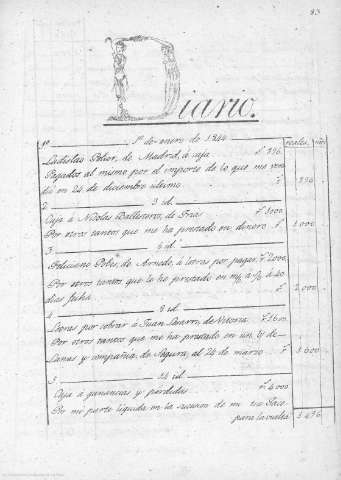 83
Diario.
1º de enero de 1844 reales mrs
Ladislao Polier, de Madrid, á caja rº 896
Pagados al mismo por el importe de lo que me ven
dió en 24 de diciembre último. rº 896
2 3 id.
Caja á Nicolas Ballestero, de Frias rº 3000
Por otros tantos que me ha prestado en dinero rº 3.000
3 6 id.
Feliciano de Arnedo, á letras por pagar rº 2000
Por otros tantos que le he prestado en á 40
dias fecha rº 2.000
4 8 id.
Letras por cobrar á Juan de Vitoria rº 1600
Por otros tantos que me ha prestado en un de
Lamas y compañia, de Segura, al 24 de marzo rº 1.600
5 14 id.
Caja á ganancias y perdidas rº 4.000
Por mi parte líquida en la de mi tio
para la vuelta